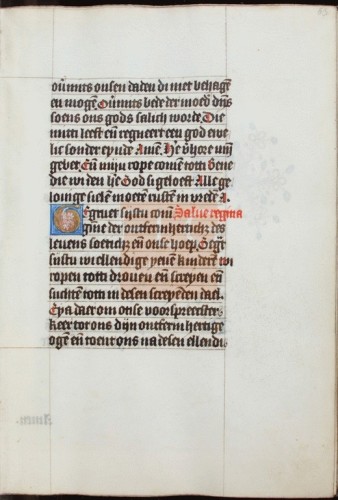 ouermits onsen daden di niet behagē
en mogē. Ouermits bede der moed’ dijns
soens ons gods salich worde. Die
mitti leeft eñ regneert een god ewe
lic sonder eynde Amē. He’ v’hore mijn
gebet. Eñ mijn rope come totti. Bene
dien wi den h’e. God si geloeft. Alle ge
louige sielē moetē rusten in vredē A.
Gegruet sijstu coni Salue regina
gine der ontfermhertich; des
leuens soeticheit eñ onse hoep. Gegr’
sijstu wi ellendige yeuen kinder wi
ropen totti droeuē eñ screyen eñ
suchten totti in desen screyenden dael.
Eya daer om onse voorspreester
keer tot ons dijn ontferm hertige
ogē eñ toent ons na desen ellendi